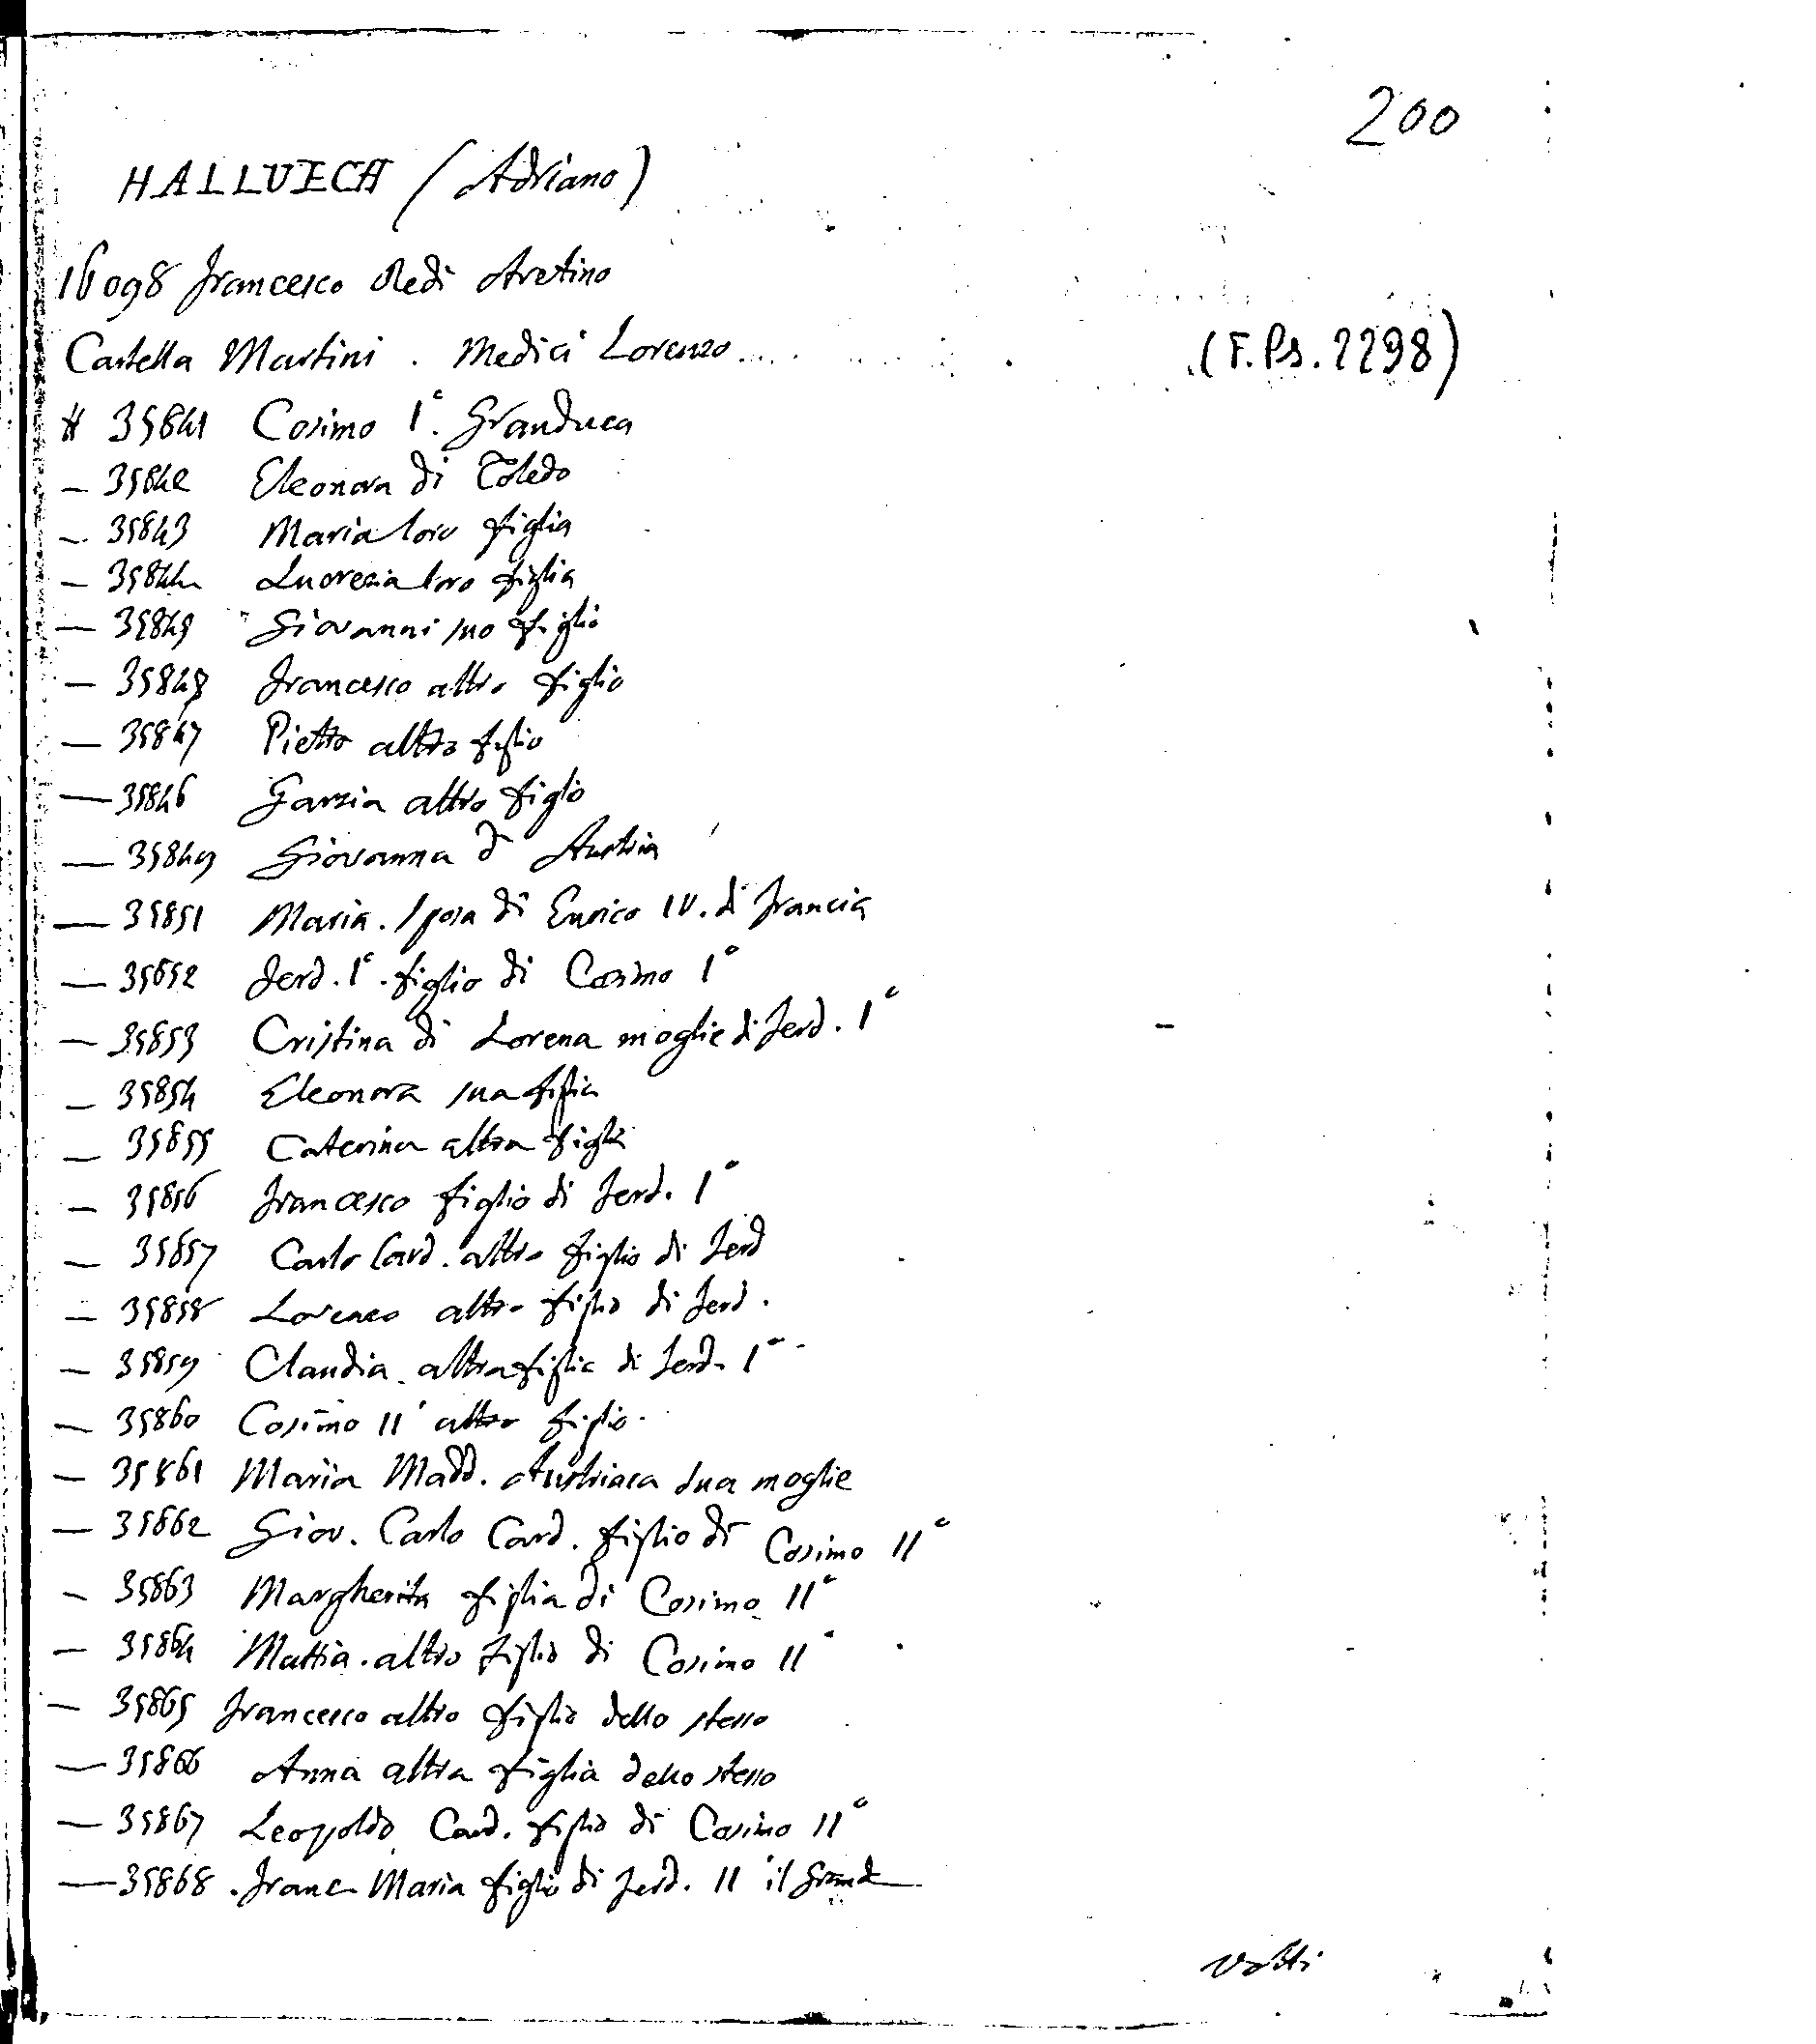 200
HALLUECH (Adriano)
16098 Francesco Redi Aretino
Cartella Martini . Medici Lorenzo....
(F. Ps. 2298)
# 35841 Cosimo I°. Granduca
— 35842 Eleonora di Toledo
— 35843 Maria loro figlia
— 35844 Lucrezia loro figlia
— 35845 Giovanni suo figlio
— 35848 Francesco altro figlio
— 35847 Pietro altro figlio
— 35846 Garzia altro figlio
— 35849 Giovanna d' Austria
— 35851 Maria. sposa di Enrico IV. di Francia
— 35852 Ferd. I°. figlio di Cosimo I°
— 35853 Cristina di Lorena moglie di Ferd. I°
— 35854 Eleonora sua figlia
— 35855 Caterina altra figlia
— 35856 Francesco figlio di Ferd. I°
— 35857 Carlo Card. altro figlio di Ferd
— 35858 Lorenzo altro figlio di Ferd.
— 35859 Claudia altra figlia di Ferd. I°
— 35860 Cosimo II° altro figlio
— 35861 Maria Madd. Austriaca sua moglie
— 35862 Giov. Carlo Card. figlio di Cosimo II°
— 35863 Margherita figlia di Cosimo II°
— 35864 Mattia. altro figlio di Cosimo II°
— 35865 Francesco altro figlio dello stesso
— 35866 Anna altra figlia dello stesso
— 35867 Leopoldo Card. figlio di Cosimo II°
— 35868 . Franc Maria figlio di Ferd. II il Grand
volti